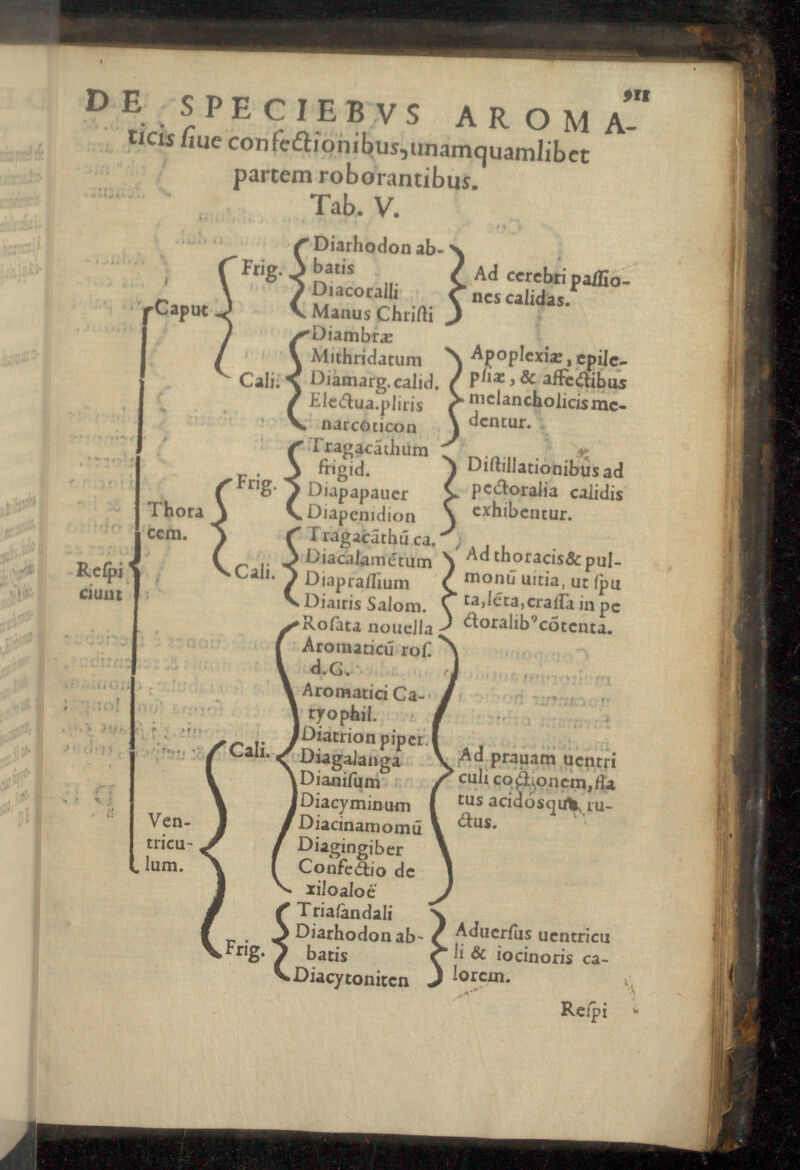 911
DE SPECIEBVS AROMA-
ticis siue confectionibus, unamquamlibet
partem roborantibus.
Tab. V.
Respi
ciunt
Caput
Frig.
Diarhodon ab-
batis
Diacoralli
Manus Christi
Ad cerebri passio-
nes calidas.
Cali.
Diambræ
Mithridatum
Diamarg. calid.
Electua. pliris
narcoticon
Apoplexiæ, epile-
psiæ, & affectibus
melancholicis me-
dentur.
Thora
cem.
Frig.
Tragacāthum
frigid.
Diapapauer
Diapenidion
Distillationibus ad
pectoralia calidis
exhibentur.
Cali.
Tragacāthū ca.
Diacalamētum
Diaprassium
Diairis Salom.
Ad thoracis & pul-
monū uitia, ut spu
ta, lēta, crassa in pe
ctoralibꝰ cōtenta.
Ven-
tricu-
lum.
Cali.
Rosata nouella
Aromaticū ros.
d.G.
Aromatici Ca-
ryophil.
Diatrion piper.
Diagalanga
Dianisum
Diacyminum
Diacinamomū
Diagingiber
Confectio de
xiloaloë
Ad prauam uentri
culi coctionem, fla
tus acidosque ru-
ctus.
Frig.
Triasandali
Diarhodon ab-
batis
Diacytoniten
Aduersus uentricu
li & iocinoris ca-
lorem.
Respi